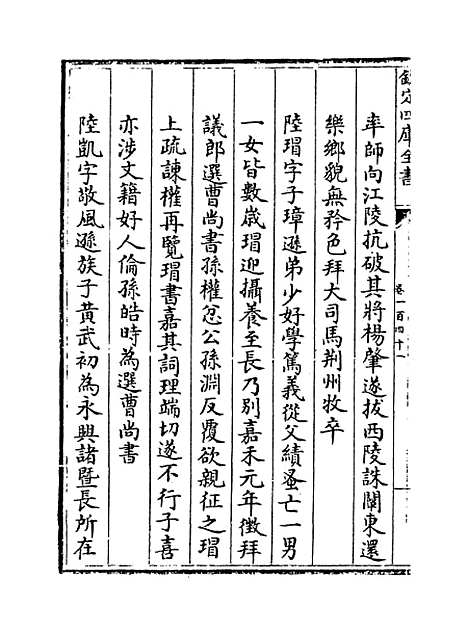 欽定四庫全書
卷一百四十一
率師向江陵抗破其將楊肇遂拔西陵誅闡東還
樂鄉貌無矜色拜大司馬荆州牧卒
陸瑁字子璋遜弟少好學篤義從父績蚤亡一男
一女皆數歳瑁迎攝養至長乃别嘉禾元年徴拜
議郎選曹尚書孫權忿公孫淵反覆欲親征之瑁
上疏諫權再覽瑁書嘉其詞理端切遂不行子喜
亦涉文籍好人倫孫皓時為選曹尚書
陸凱字敬風遜族子黄武初為永興諸暨長所在